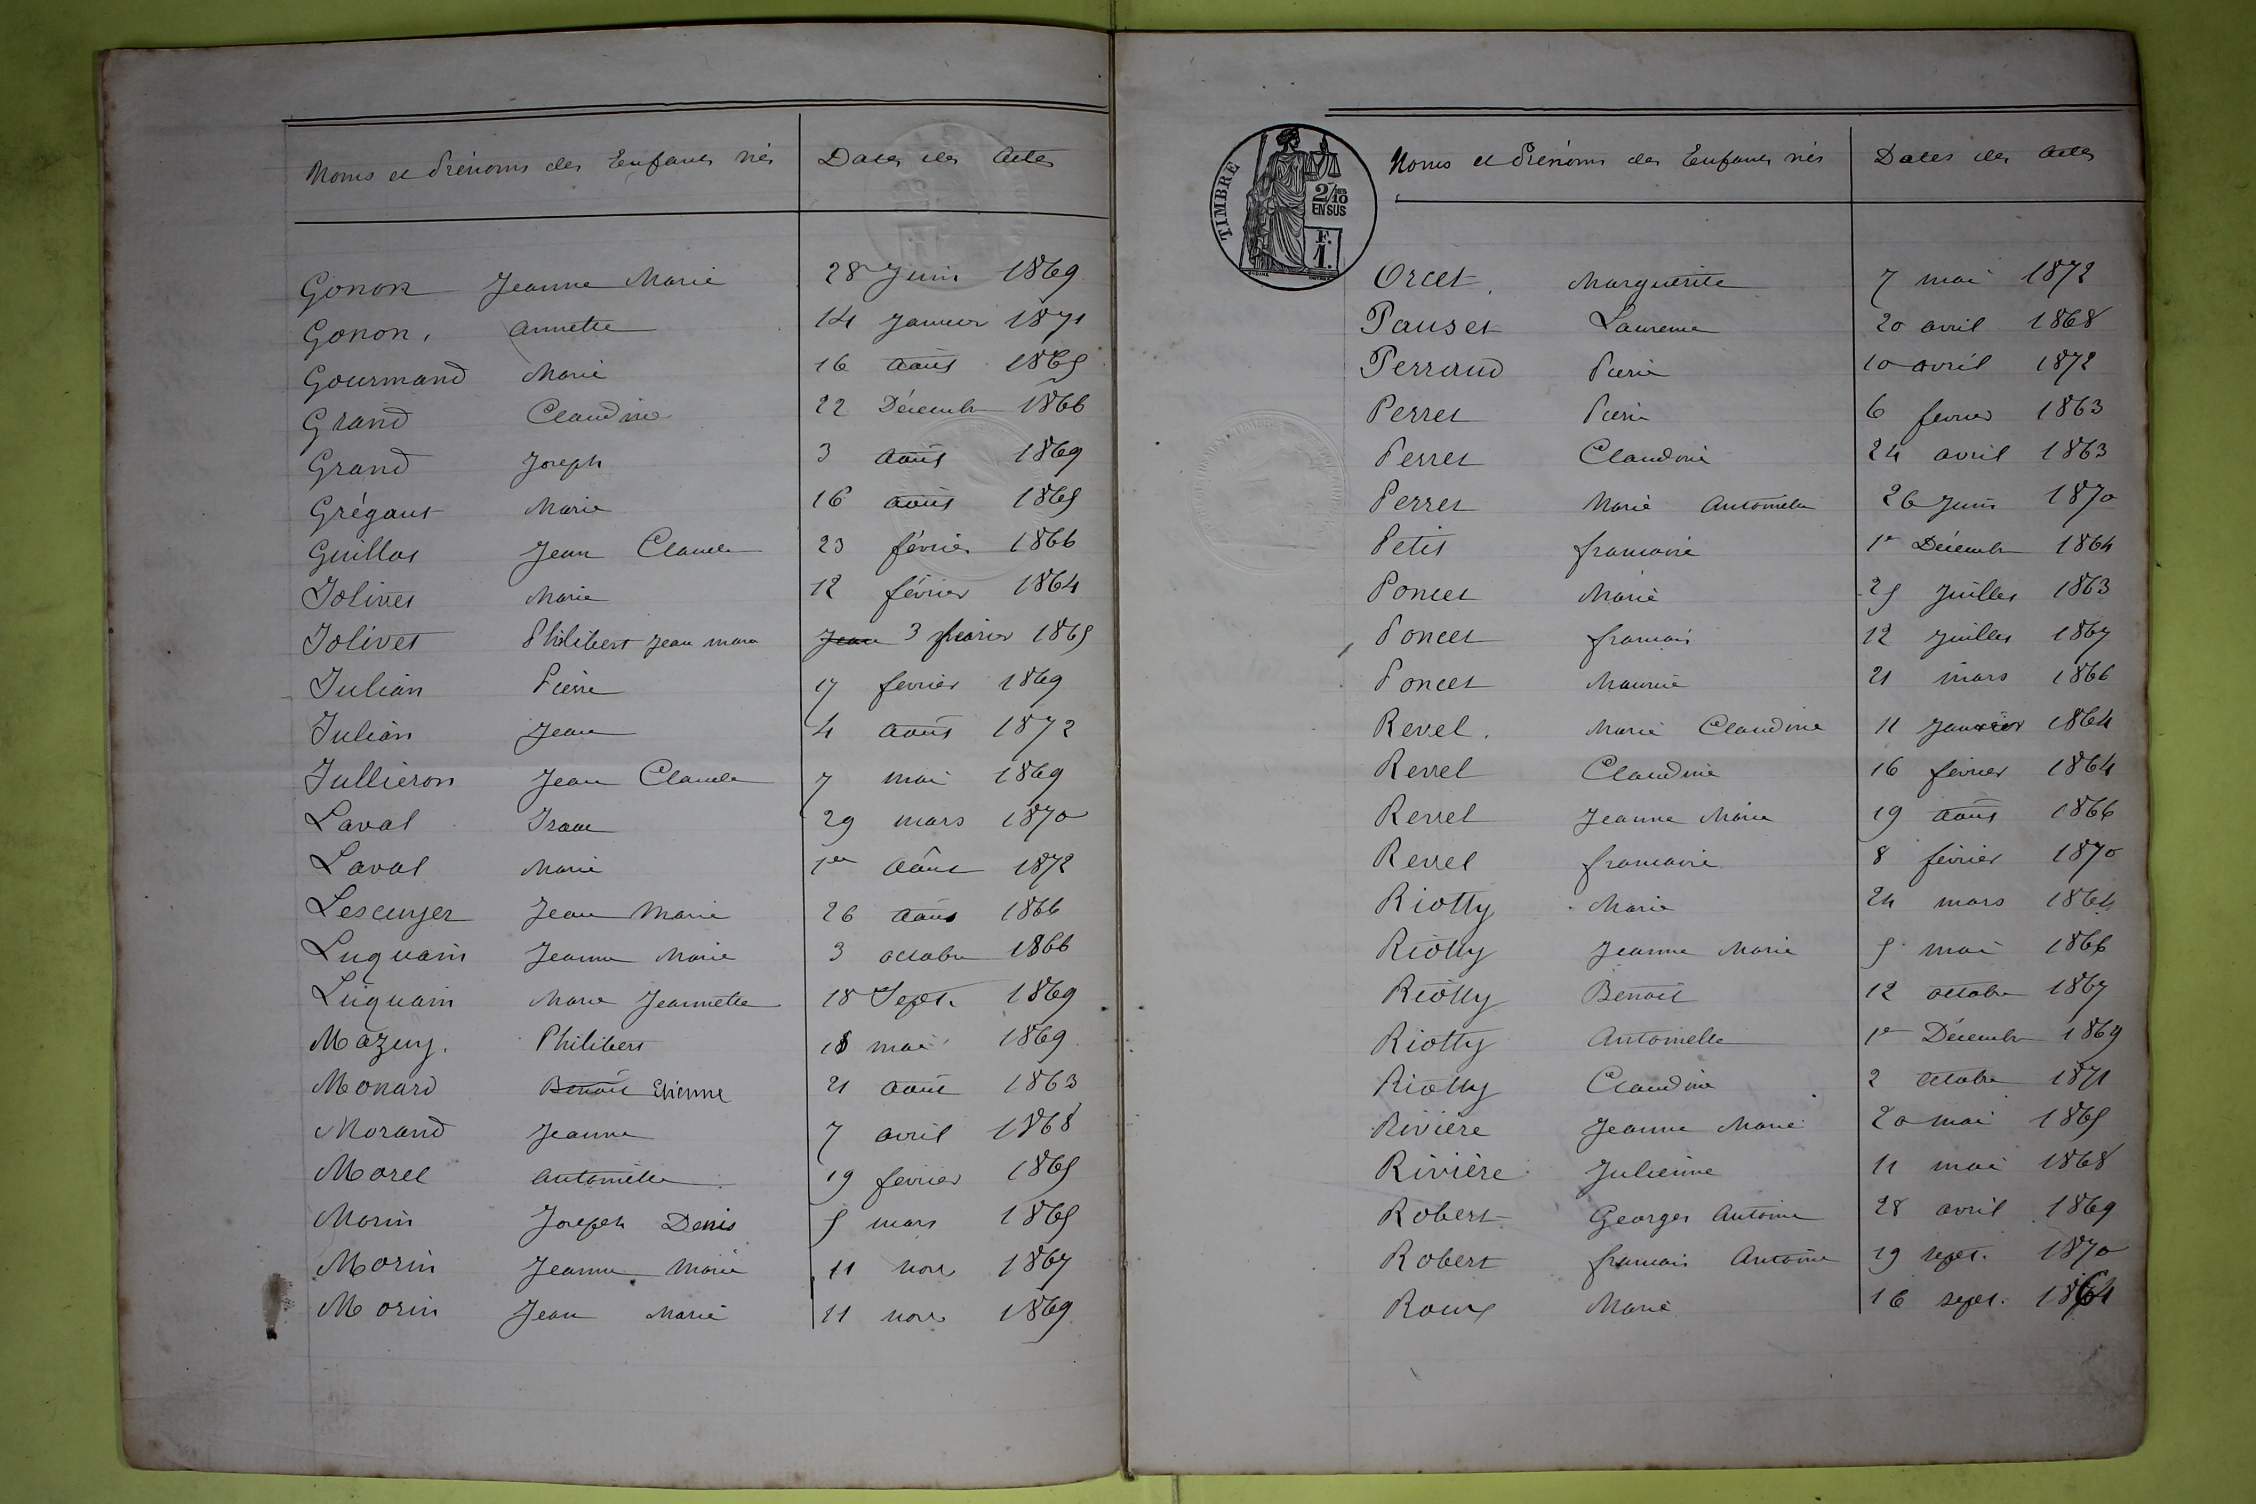 Noms et Prénoms des Enfants nés Dates des Actes
Gonon Jeanne Marie 28 Juin 1869
Gonon, Annette 14 Janvier 1871
Gourmand Marie 16 Août 1865
Grand Claudine 22 Décembre 1866
Grand Joseph 3 Août 1869
Grégaut Marie 16 Août 1865
Guillot Jean Claude 23 février 1866
Jolivet Marie 12 février 1864
Jolivet Philibert Jean Marie Jean 3 février 1865
Julian Pierre 17 février 1869
Julian Jean 4 Août 1872
Jullieron Jean Claude 7 mai 1869
Laval Isaac 29 mars 1870
Laval Marie 1er Août 1872
Lescuyer Jean Marie 26 Août 1866
Luquain Jeanne Marie 3 octobre 1866
Luquain Marie Jeannette 18 Sept. 1869
Mazuy. Philibert 18 mai 1869
Monard Benoît Etienne 21 Août 1863
Morand Jeanne 7 avril 1868
Morel Antoinette 19 février 1865
Morin Joseph Denis 5 mars 1865
Morin Jeanne Marie 11 nov 1867
Morin Jean Marie 11 nov 1869
TIMBRE
2/10
EN SUS
F.
1.
Noms et Prénoms des Enfants nés Dates des Actes
Orcet Marguerite 7 mai 1872
Pauset Laurence 20 avril 1868
Perraud Pierre 10 avril 1872
Perret Pierre 6 février 1863
Perret Claudine 24 avril 1863
Perret Marie Antoinette 26 Juin 1870
Petit françoise 1er Décembre 1864
Poncet Marie 25 Juillet 1863
Poncet françois 12 Juillet 1867
Poncet Maurice 21 mars 1866
Revel. Marie Claudine 11 Janvier 1864
Revel Claudine 16 février 1864
Revel Jeanne Marie 19 Août 1866
Revel françoise 8 février 1870
Riotty Marie 24 mars 1864
Riotty Jeanne Marie 5 mai 1866
Riotty Benoît 12 octobre 1867
Riotty Antoinette 1er Décembre 1869
Riotty Claudine 2 octobre 1871
Rivière Jeanne Marie 20 mai 1865
Rivière Julienne 11 mai 1868
Robert Georges Antoine 28 avril 1869
Robert françois Antoine 19 sept. 1870
Roux Marie 16 sept. 1864